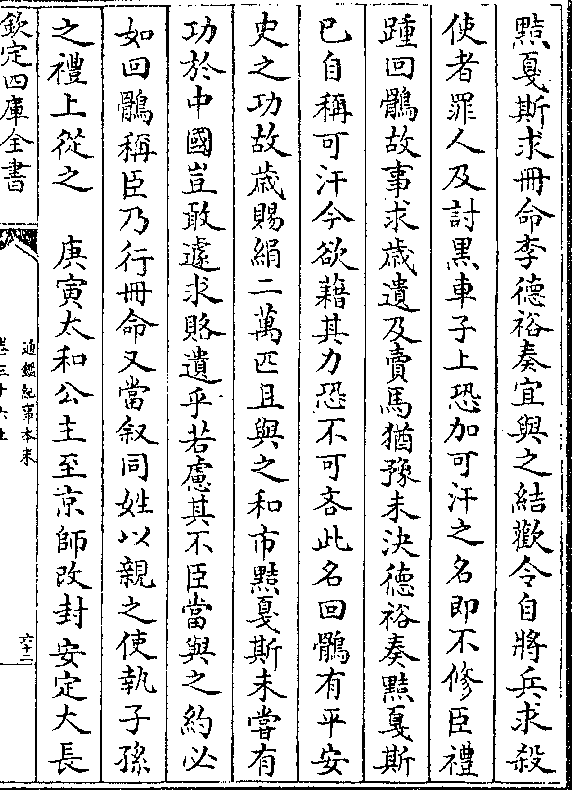 黠戛斯求冊命李德裕奏宜與之結歡令自將兵求殺
使者罪人及討黑車子上恐加可汗之名即不修臣禮
踵回鶻故事求歲遺及賣馬猶豫未決德裕奏黠戛斯
已自稱可汗今欲藉其力恐不可吝此名回鶻有平安
史之功故歲賜絹二萬匹且與之和市黠戛斯未嘗有
功於中國豈敢遽求賂遺乎若慮其不臣當與之約必
如回鶻稱臣乃行冊命又當叙同姓以親之使執子孫
之禮上從之　庚寅太和公主至京師改封安定大長
欽定四庫全書
通鑑紀事本末
卷三十六上
六十二